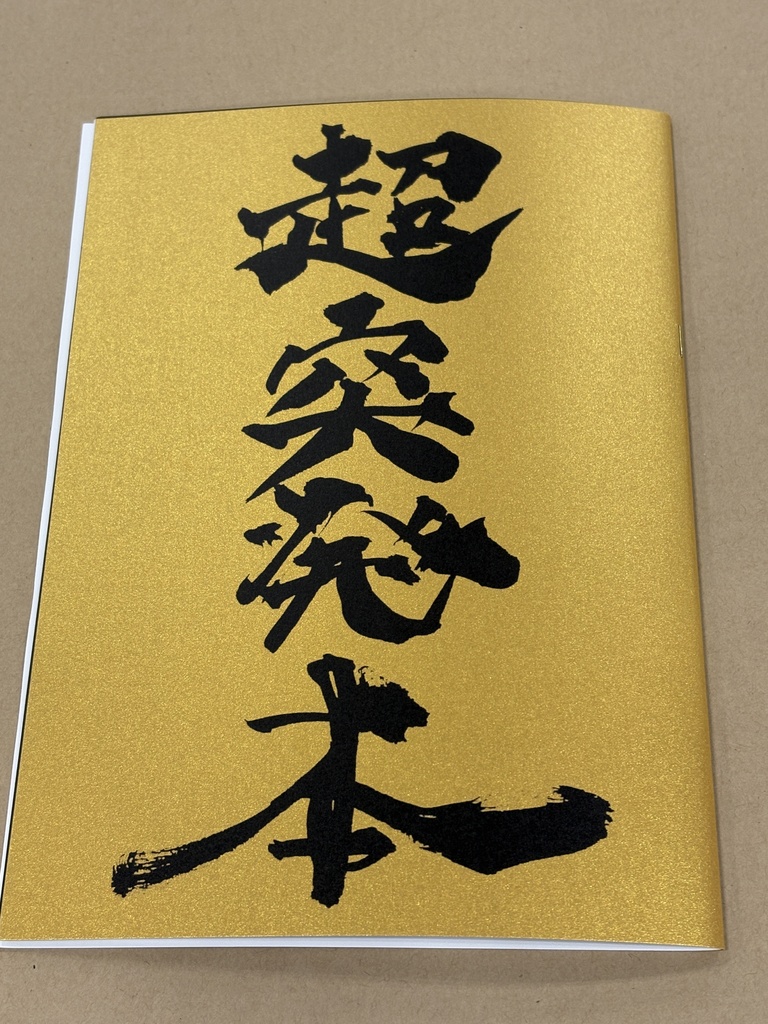 超突発本